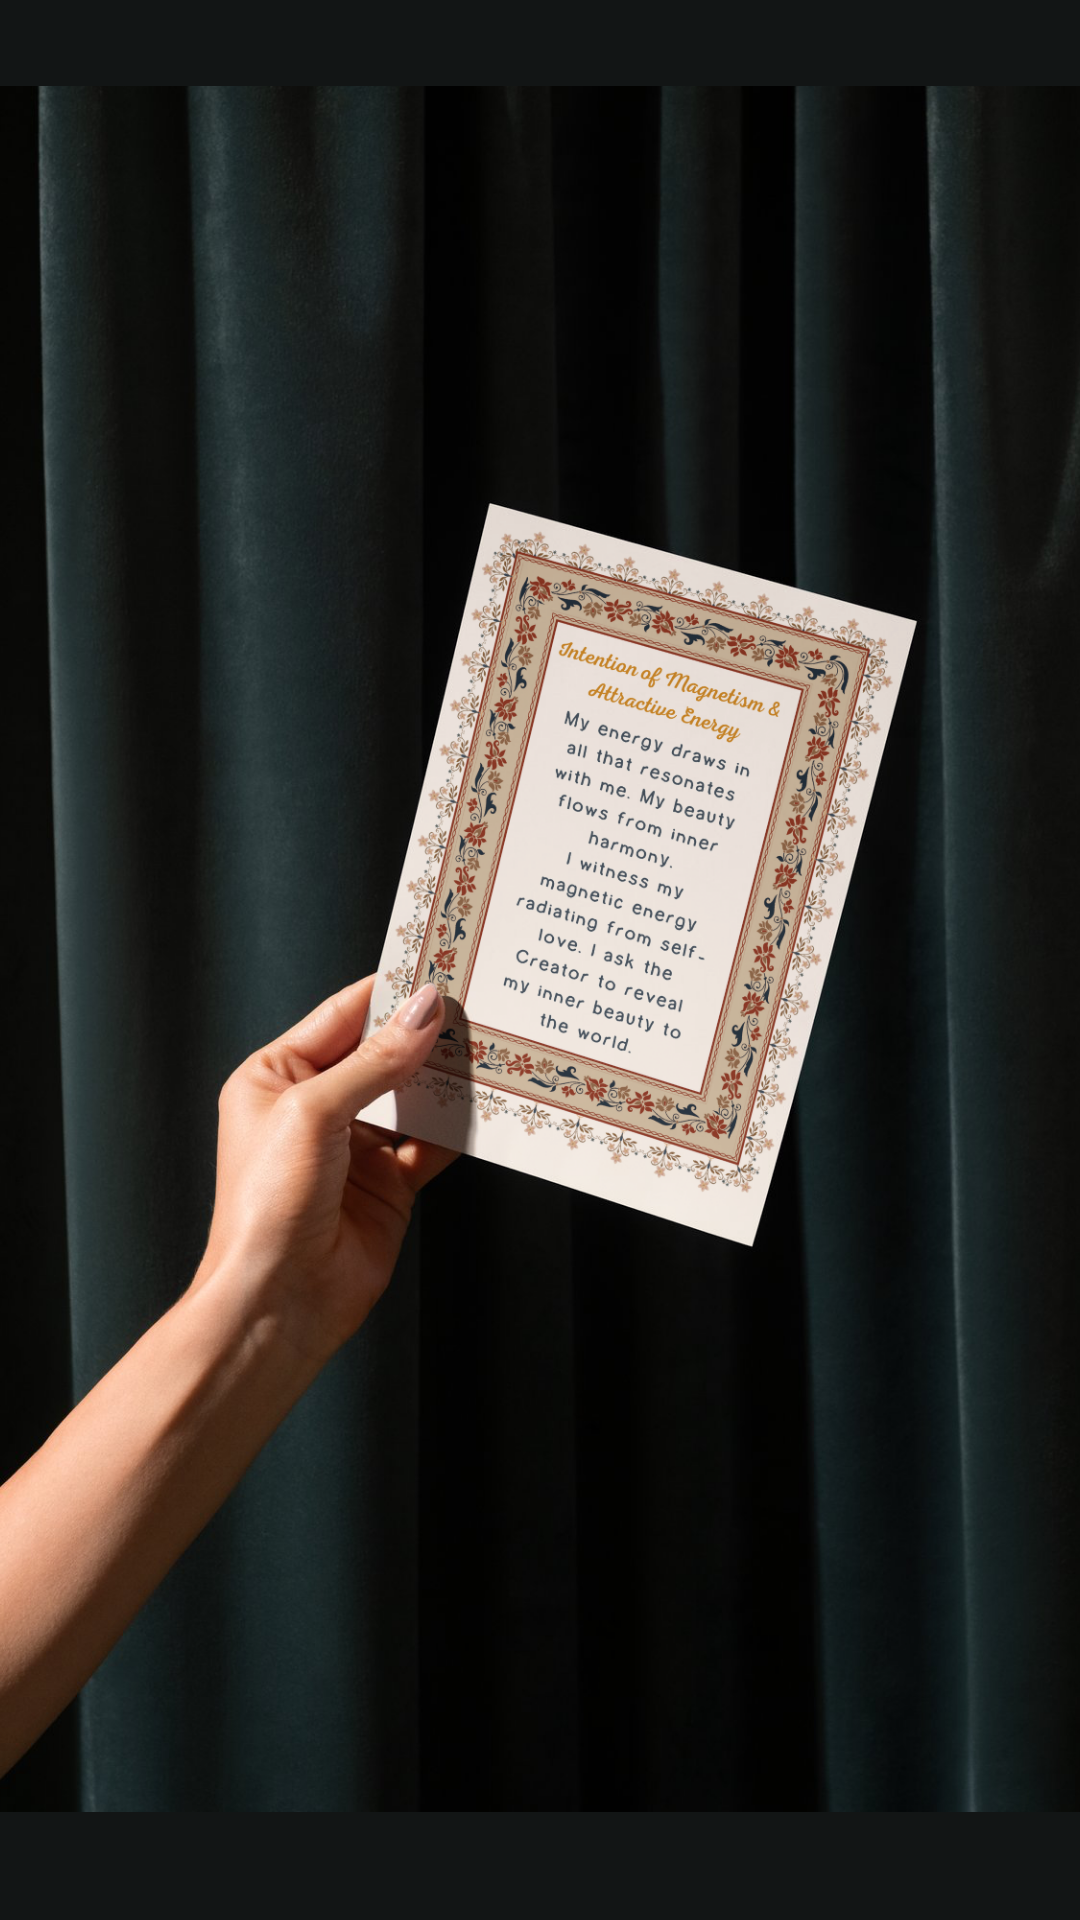 Intention of Magnetism &
Attractive Energy
My energy draws in
all that resonates
with me. My beauty
flows from inner
harmony.
I witness my
magnetic energy
radiating from self-
love. I ask the
Creator to reveal
my inner beauty to
the world.